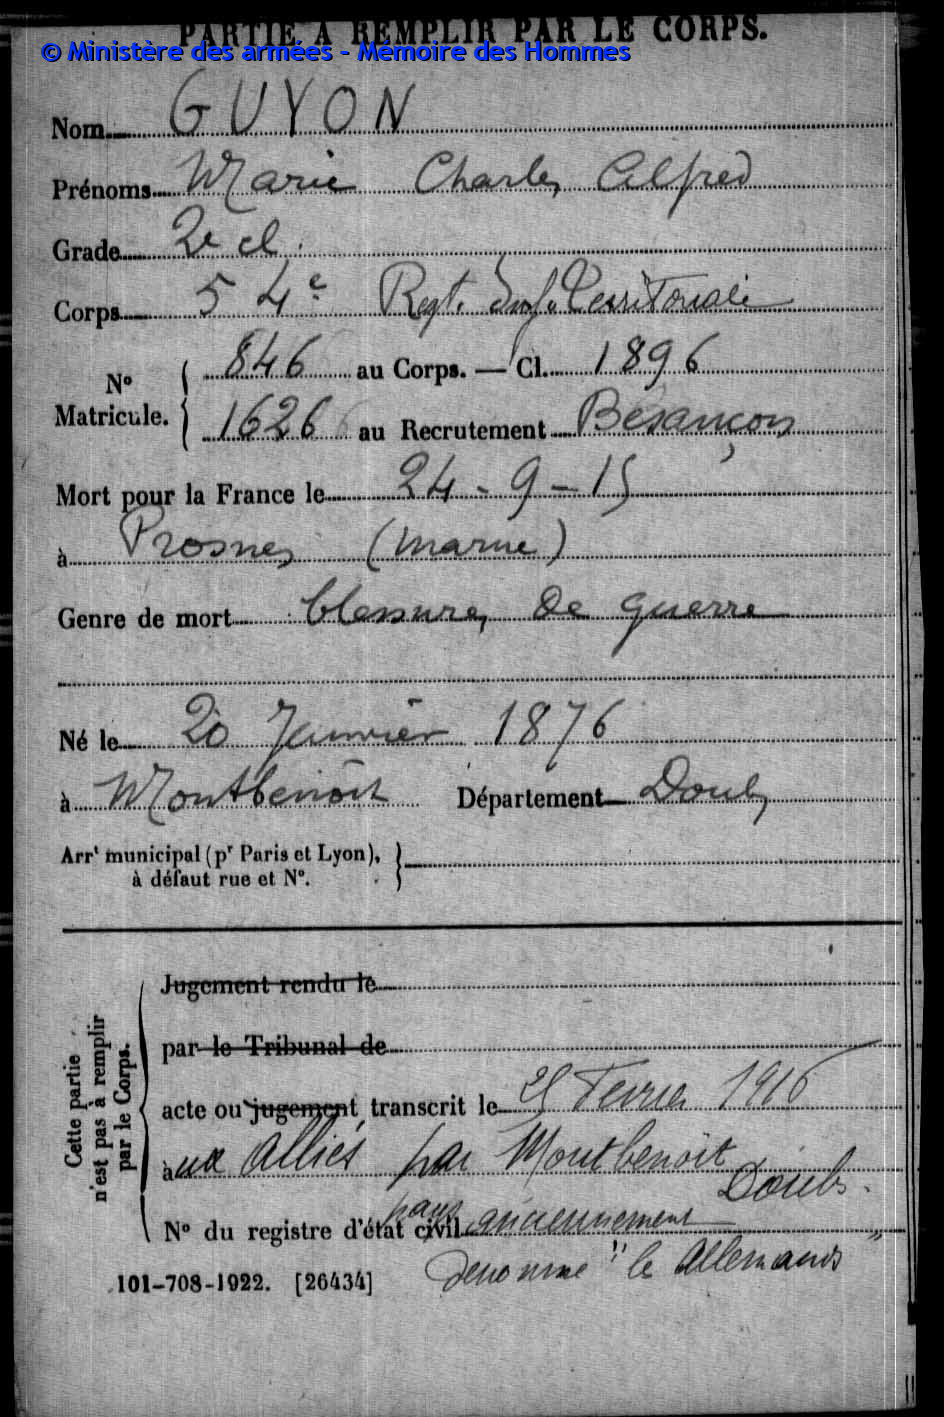 PARTIE A REMPLIR PAR LE CORPS.
© Ministère des armées - Mémoire des Hommes
Nom GUYON
Prénoms Marie Charles Alfred
Grade 2e cl.
Corps 54e Regt. Inf. Territoriale
No Matricule. 846 au Corps. — Cl. 1896
1626 au Recrutement Besançon
Mort pour la France le 24-9-15
à Prosnes (Marne)
Genre de mort blessures de guerre
Né le 20 Janvier 1876
à Montbenoît Département Doubs
Arrt municipal (pr Paris et Lyon),
à défaut rue et No.
Cette partie
n'est pas à remplir
par le Corps.
Jugement rendu le
par le Tribunal de
acte ou jugement transcrit le 25 Fevrier 1916
aux Alliés par Montbenoit
Doubs.
pays anciennement
No du registre d'état civil
denommé "les Allemands"
101-708-1922. [26434]